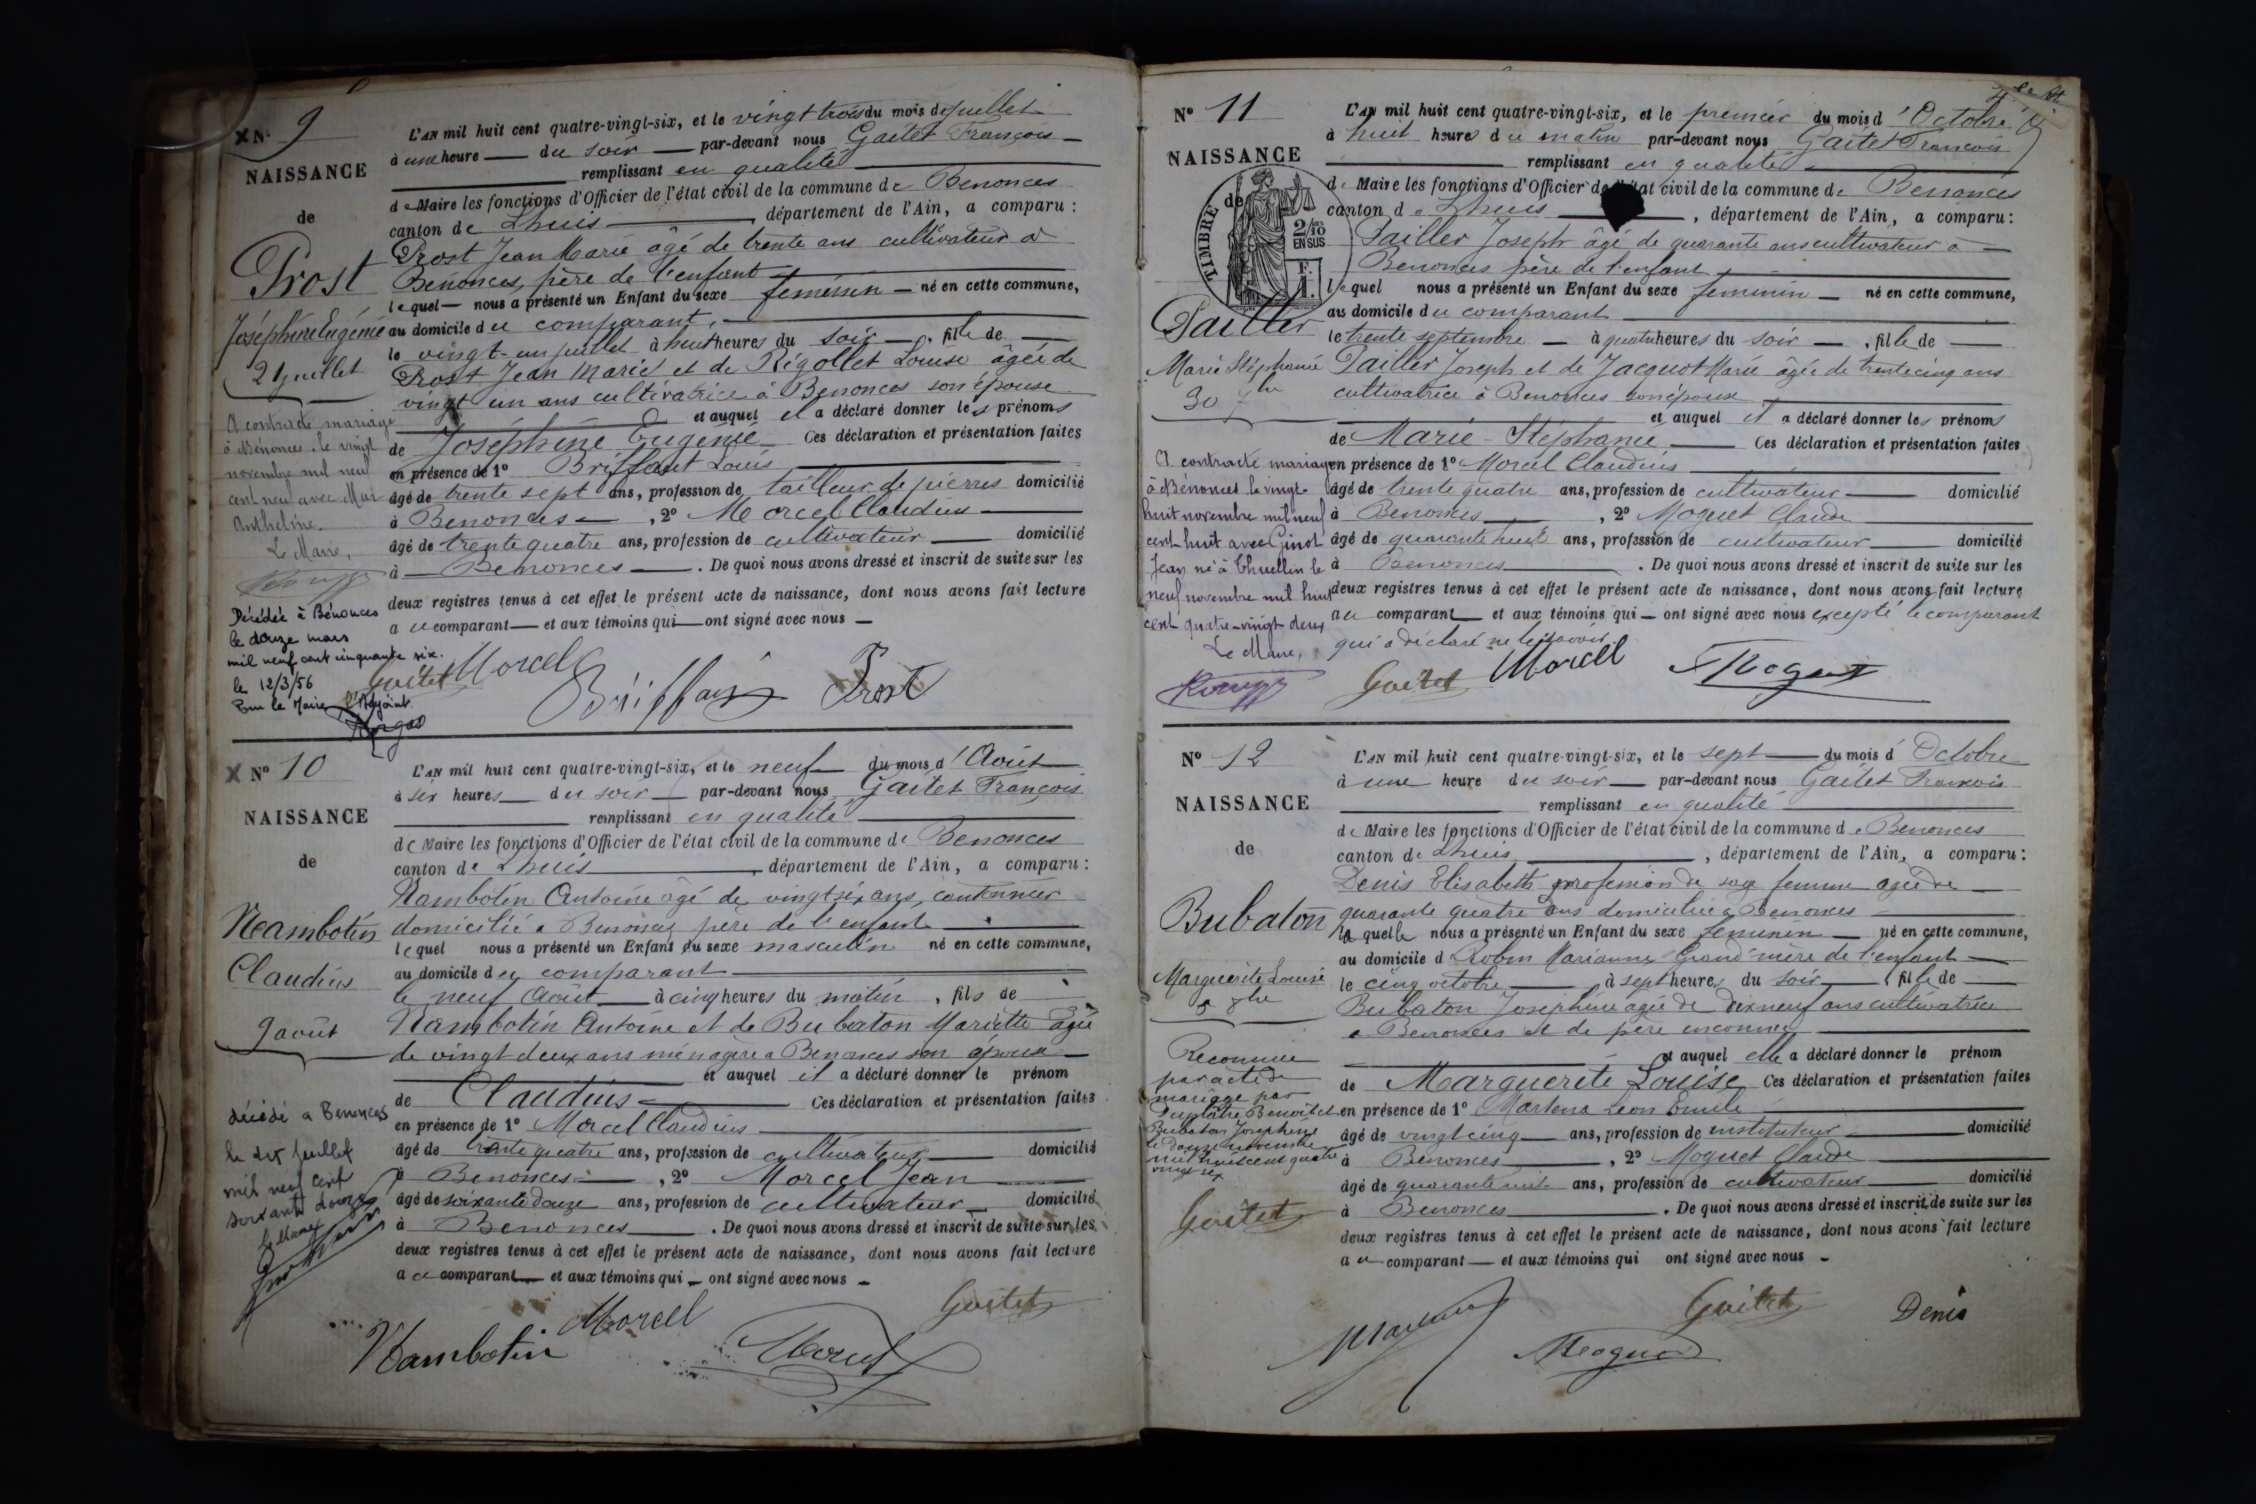 N° 9
NAISSANCE
de
Prost
Joséphine Eugénie
21 juillet
A contracté mariage
à Bénonces le vingt
novembre mil neuf
cent neuf avec
Anthelme
Le Maire,
Décédée à Bénonces
le douze mars
mil neuf cent cinquante six.
le 12/3/56
Pour le Maire l'Adjoint
L'AN mil huit cent quatre-vingt-six, et le vingt trois du mois de juillet
à une heure du soir par-devant nous Gaitet François
remplissant en qualité
de Maire les fonctions d'Officier de l'état civil de la commune de Benonces
canton de Lhuis, département de l'Ain, a comparu :
Prost Jean Marie âgé de trente ans cultivateur à
Benonces, père de l'enfant
lequel nous a présenté un Enfant du sexe féminin né en cette commune,
au domicile du comparant,
le vingt-un juillet à heures du soir, fille de
Prost Jean Marie et de Rigollet Louise âgée de
vingt un ans cultivatrice à Benonces son épouse
et auquel il a déclaré donner les prénoms
de Joséphine Eugénie Ces déclaration et présentation faites
en présence de 1° Briffaut Louis
âgé de trente sept ans, profession de tailleur de pierres domicilié
à Benonces, 2° Morcel Claudius
âgé de trente quatre ans, profession de cultivateur domicilié
à Benonces. De quoi nous avons dressé et inscrit de suite sur les
deux registres tenus à cet effet le présent acte de naissance, dont nous avons fait lecture
au comparant et aux témoins qui ont signé avec nous
Gaitet Morcel Prost
N° 10
NAISSANCE
de
Nambotin
Claudius
9 août
décédé a Benonces
le dix juillet
mil neuf cent
soixante douze
le Maire
L'AN mil huit cent quatre-vingt-six, et le neuf du mois d'Août
à six heures du soir par-devant nous Gaitet François
remplissant en qualité
de Maire les fonctions d'Officier de l'état civil de la commune de Benonces
canton de Lhuis, département de l'Ain, a comparu :
Nambotin Antoine âgé de vingt six ans, cantonnier
domicilié à Benonces père de l'enfant
lequel nous a présenté un Enfant du sexe masculin né en cette commune,
au domicile du comparant
le neuf Août à cinq heures du matin, fils de
Nambotin Antoine et de Bubaton Mariette âgée
de vingt deux ans ménagère a Benonces son épouse
et auquel il a déclaré donner le prénom
de Claudius Ces déclaration et présentation faites
en présence de 1° Morcel Claudius
âgé de trente quatre ans, profession de cultivateur domicilié
à Benonces, 2° Morcel Jean
âgé de soixante douze ans, profession de cultivateur domicilié
à Benonces. De quoi nous avons dressé et inscrit de suite sur les
deux registres tenus à cet effet le présent acte de naissance, dont nous avons fait lecture
au comparant et aux témoins qui ont signé avec nous
Gaitet
Nambotin Morcel Morcel
N° 11
NAISSANCE
de
TIMBRE
2/10 EN SUS
Pailler
Marie Stéphanie
30 7bre
A contracté mariage
à Bénonces le vingt
huit novembre mil neuf
cent huit avec Ginot
Jean né à Thuellin le
neuf novembre mil huit
cent quatre-vingt deux
Le Maire,
L'AN mil huit cent quatre-vingt-six, et le premier du mois d'Octobre
à huit heures du matin par-devant nous Gaitet François
remplissant en qualité
de Maire les fonctions d'Officier de l'état civil de la commune de Benonces
canton de Lhuis, département de l'Ain, a comparu :
Pailler Joseph âgé de quarante ans cultivateur à
Benonces père de l'enfant
lequel nous a présenté un Enfant du sexe feminin né en cette commune,
au domicile du comparant
le trente septembre à quatre heures du soir, fille de
Pailler Joseph et de Jacquot Marie âgée de trente cinq ans
cultivatrice à Benonces son épouse
et auquel il a déclaré donner les prénoms
de Marie-Stéphanie Ces déclaration et présentation faites
en présence de 1° Morcel Claudius
âgé de trente quatre ans, profession de cultivateur domicilié
à Benonces, 2° Moguet Claude
âgé de quarante huit ans, profession de cultivateur domicilié
à Benonces. De quoi nous avons dressé et inscrit de suite sur les
deux registres tenus à cet effet le présent acte de naissance, dont nous avons fait lecture
au comparant et aux témoins qui ont signé avec nous excepté le comparant
qui a déclaré ne le savoir.
Gaitet Morcel Moguet
N° 12
NAISSANCE
de
Bubaton
Marguerite Louise
5 8bre
Reconnue
par acte de
mariage par
Benoit et
Bubaton Josephine
le douze novembre
mil huit cent quatre
vingt six
Gaitet
L'AN mil huit cent quatre-vingt-six, et le sept du mois d'Octobre
à une heure du soir par-devant nous Gaitet François
remplissant en qualité
de Maire les fonctions d'Officier de l'état civil de la commune de Benonces
canton de Lhuis, département de l'Ain, a comparu :
Denis Elisabeth profession de sage femme agée de
quarante quatre ans domiciliée a Benonces
laquelle nous a présenté un Enfant du sexe feminin né en cette commune,
au domicile d Robin Marianne Grand'mère de l'enfant
le cinq octobre à sept heures du soir, fille de
Bubaton Joséphine agée de dix neuf ans cultivatrice
a Benonces et de père inconnu
et auquel elle a déclaré donner le prénom
de Marguerite Louise Ces déclaration et présentation faites
en présence de 1° Leon Emile
âgé de vingt cinq ans, profession de instituteur domicilié
à Benonces, 2° Moguet Claude
âgé de quarante huit ans, profession de cultivateur domicilié
à Benonces. De quoi nous avons dressé et inscrit de suite sur les
deux registres tenus à cet effet le présent acte de naissance, dont nous avons fait lecture
au comparant et aux témoins qui ont signé avec nous
Gaitet Denis
Moguet